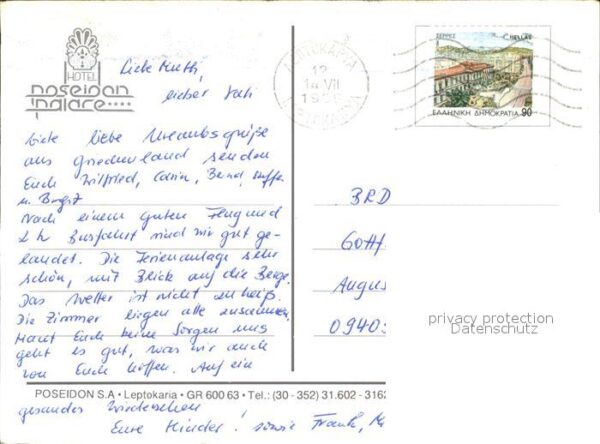 HOTEL
poseidon
palace****
ΣΕΡΡΕΣ
ΕΛΛΑΣ
ΕΛΛΗΝΙΚΗ ΔΗΜΟΚΡΑΤΙΑ 90
12
14 VII
Liebe Mutti,
lieber Vati
Viele liebe Urlaubsgrüße
aus Griechenland senden
Euch Wilfried, Carin, Bernd, Steffen
u. Birgit
Nach einem guten Flug und
2 h Busfahrt sind wir gut ge-
landet. Die Ferienanlage sehr
schön, mit Blick auf die Berge.
Das Wetter ist nicht zu heiß.
Die Zimmer liegen alle zusammen.
Macht Euch keine Sorgen uns
geht es gut, was wir auch
von Euch hoffen. Auf ein
gesundes Wiedersehen!
Eure Kinder! sowie Frank,
BRD
Gotth
Augus
0940
privacy protection
Datenschutz
POSEIDON S.A • Leptokaria • GR 600 63 • Tel.: (30 - 352) 31.602 - 3162